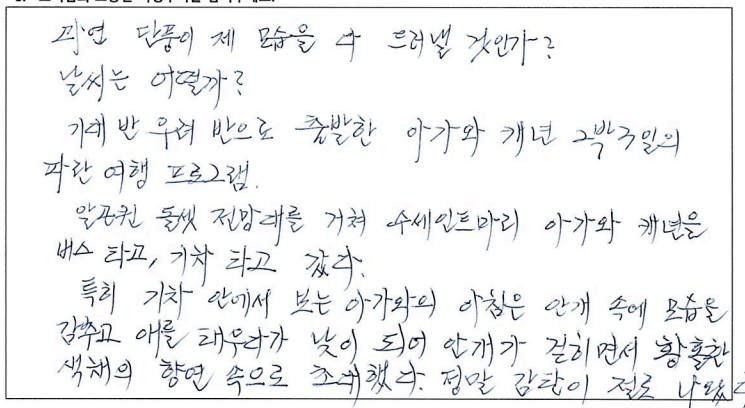 과연 단풍이 제 모습을 다 드러낼 것인가?
날씨는 어떨까?
기대 반 우려 반으로 출발한 아가와 캐년 2박3일의
파란 여행 프로그램.
알곤퀸 돌셋 전망대를 거쳐 수세인트마리 아가와 캐년을
버스 타고, 기차 타고 갔다.
특히 기차 안에서 보는 아가와의 아침은 안개 속에 모습을
감추고 애를 태우다가 낮이 되어 안개가 걷히면서 황홀한
색채의 향연 속으로 초대했다. 정말 감탄이 절로 나왔다